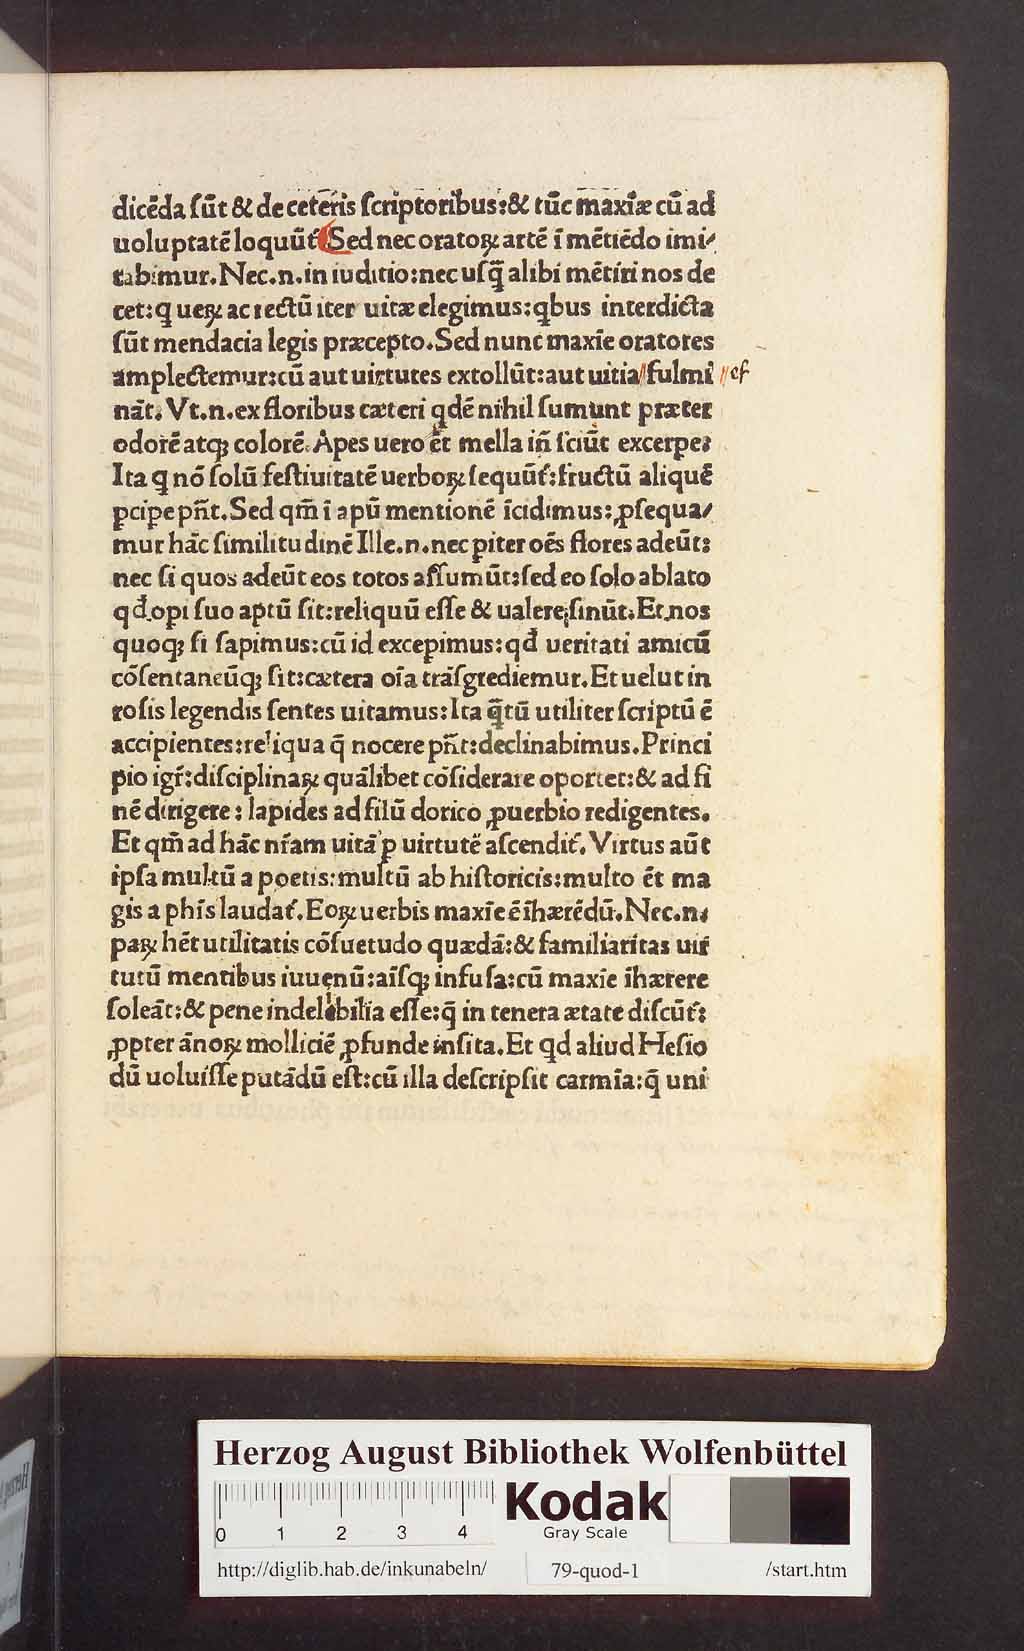 dicēda ſūt & de ceteris ſcriptoribus:& tūc maxīæ cū ad
uoluptatē loquūt᷑ Sed nec oratoꝝ artē ī mētiēdo imi/
tabimur. Nec.n.in iuditio:nec uſq̄ alibi mētiri nos de
cet:q ueꝝ ac rectū iter uitæ elegimus:qbus interdicta
ſūt mendacia legis præcepto. Sed nunc maxīe oratores
amplectemur:cū aut uirtutes extollūt:aut uitia // fulmī // eſ
nāt. Vt.n.ex floribus cæteri qdē nihil ſumunt præter
odorē atqꝫ colorē. Apes uero ēt mella iñ ſciūt excerpe:
Ita q nō ſolū feſtiuitatē uerboꝝ ſequūt᷑:fructū aliquē
ꝑcipe pñt. Sed qm̄ ī apū mentionē īcidimus:ꝓſequa/
mur hāc ſimilitudinē Ille.n.nec ꝑiter oēs flores adeūt:
nec ſi quos adeūt eos totos aſſumūt:ſed eo ſolo ablato
qđ opi ſuo aptū ſit:reliquū eſſe & ualere ſinūt. Et nos
quoqꝫ ſi ſapimus:cū id excepimus:qđ ueritati amicū
cōſentaneūqꝫ ſit:cætera oīa trāſgrediemur. Et uelut in
roſis legendis ſentes uitamus:Ita q̄tū utiliter ſcriptū ē
accipientes:reliqua q̄ nocere pñt:declinabimus. Princi
pio igr̄:diſciplinaꝝ quālibet cōſiderare oportet:& ad fi
nē dirigere: lapides ad filū dorico ꝓuerbio redigentes.
Et qm̄ ad hāc nr̄am uitā ꝑ uirtutē aſcendit᷑. Virtus aūt
ipſa multū a poetis:multū ab hiſtoricis:multo ēt ma
gis a phīs laudat᷑. Eoꝝ uerbis maxīe ē īhærēdū. Nec.n.
paꝝ hēt utilitatis cōſuetudo quædā:& familiaritas uir
tutū mentibus iuuenū:aīſqꝫ infuſa:cū maxīe īhærere
ſoleāt:& pene indelebilia eſſe:q̄ in tenera ætate diſcūt᷑:
ꝓpter ānoꝝ molliciē ꝓfunde inſita. Et qd aliud Heſio
dū uoluiſſe putādū eſt:cū illa deſcripſit carmīa:q̄ uni
Herzog August Bibliothek Wolfenbüttel
0 1 2 3 4
Kodak
Gray Scale
http://diglib.hab.de/inkunabeln/ 79-quod-1 /start.htm